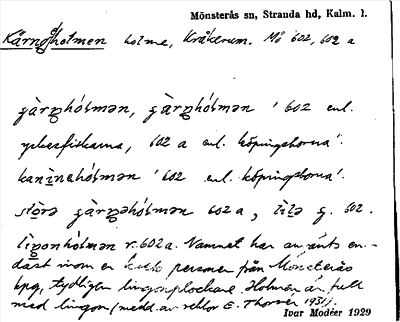 Mönsterås sn, Stranda hd, Kalm. l.
Kärnøholmen holme, Kråkerum. Mö 602, 602 a
'602 enl.
yrkesfiskarna, 602 a enl. köpingsborna'.
'602 enl. köpingsborna'.
602 a, g. 602.
r. 602 a. Namnet har använts en-
dast inom en krets personer från Mönsterås
kpg, tydligen lingonplockare. Holmen är full
med lingon (medd. av rektor E. Thorsér 1931).
Ivar Modéer 1929